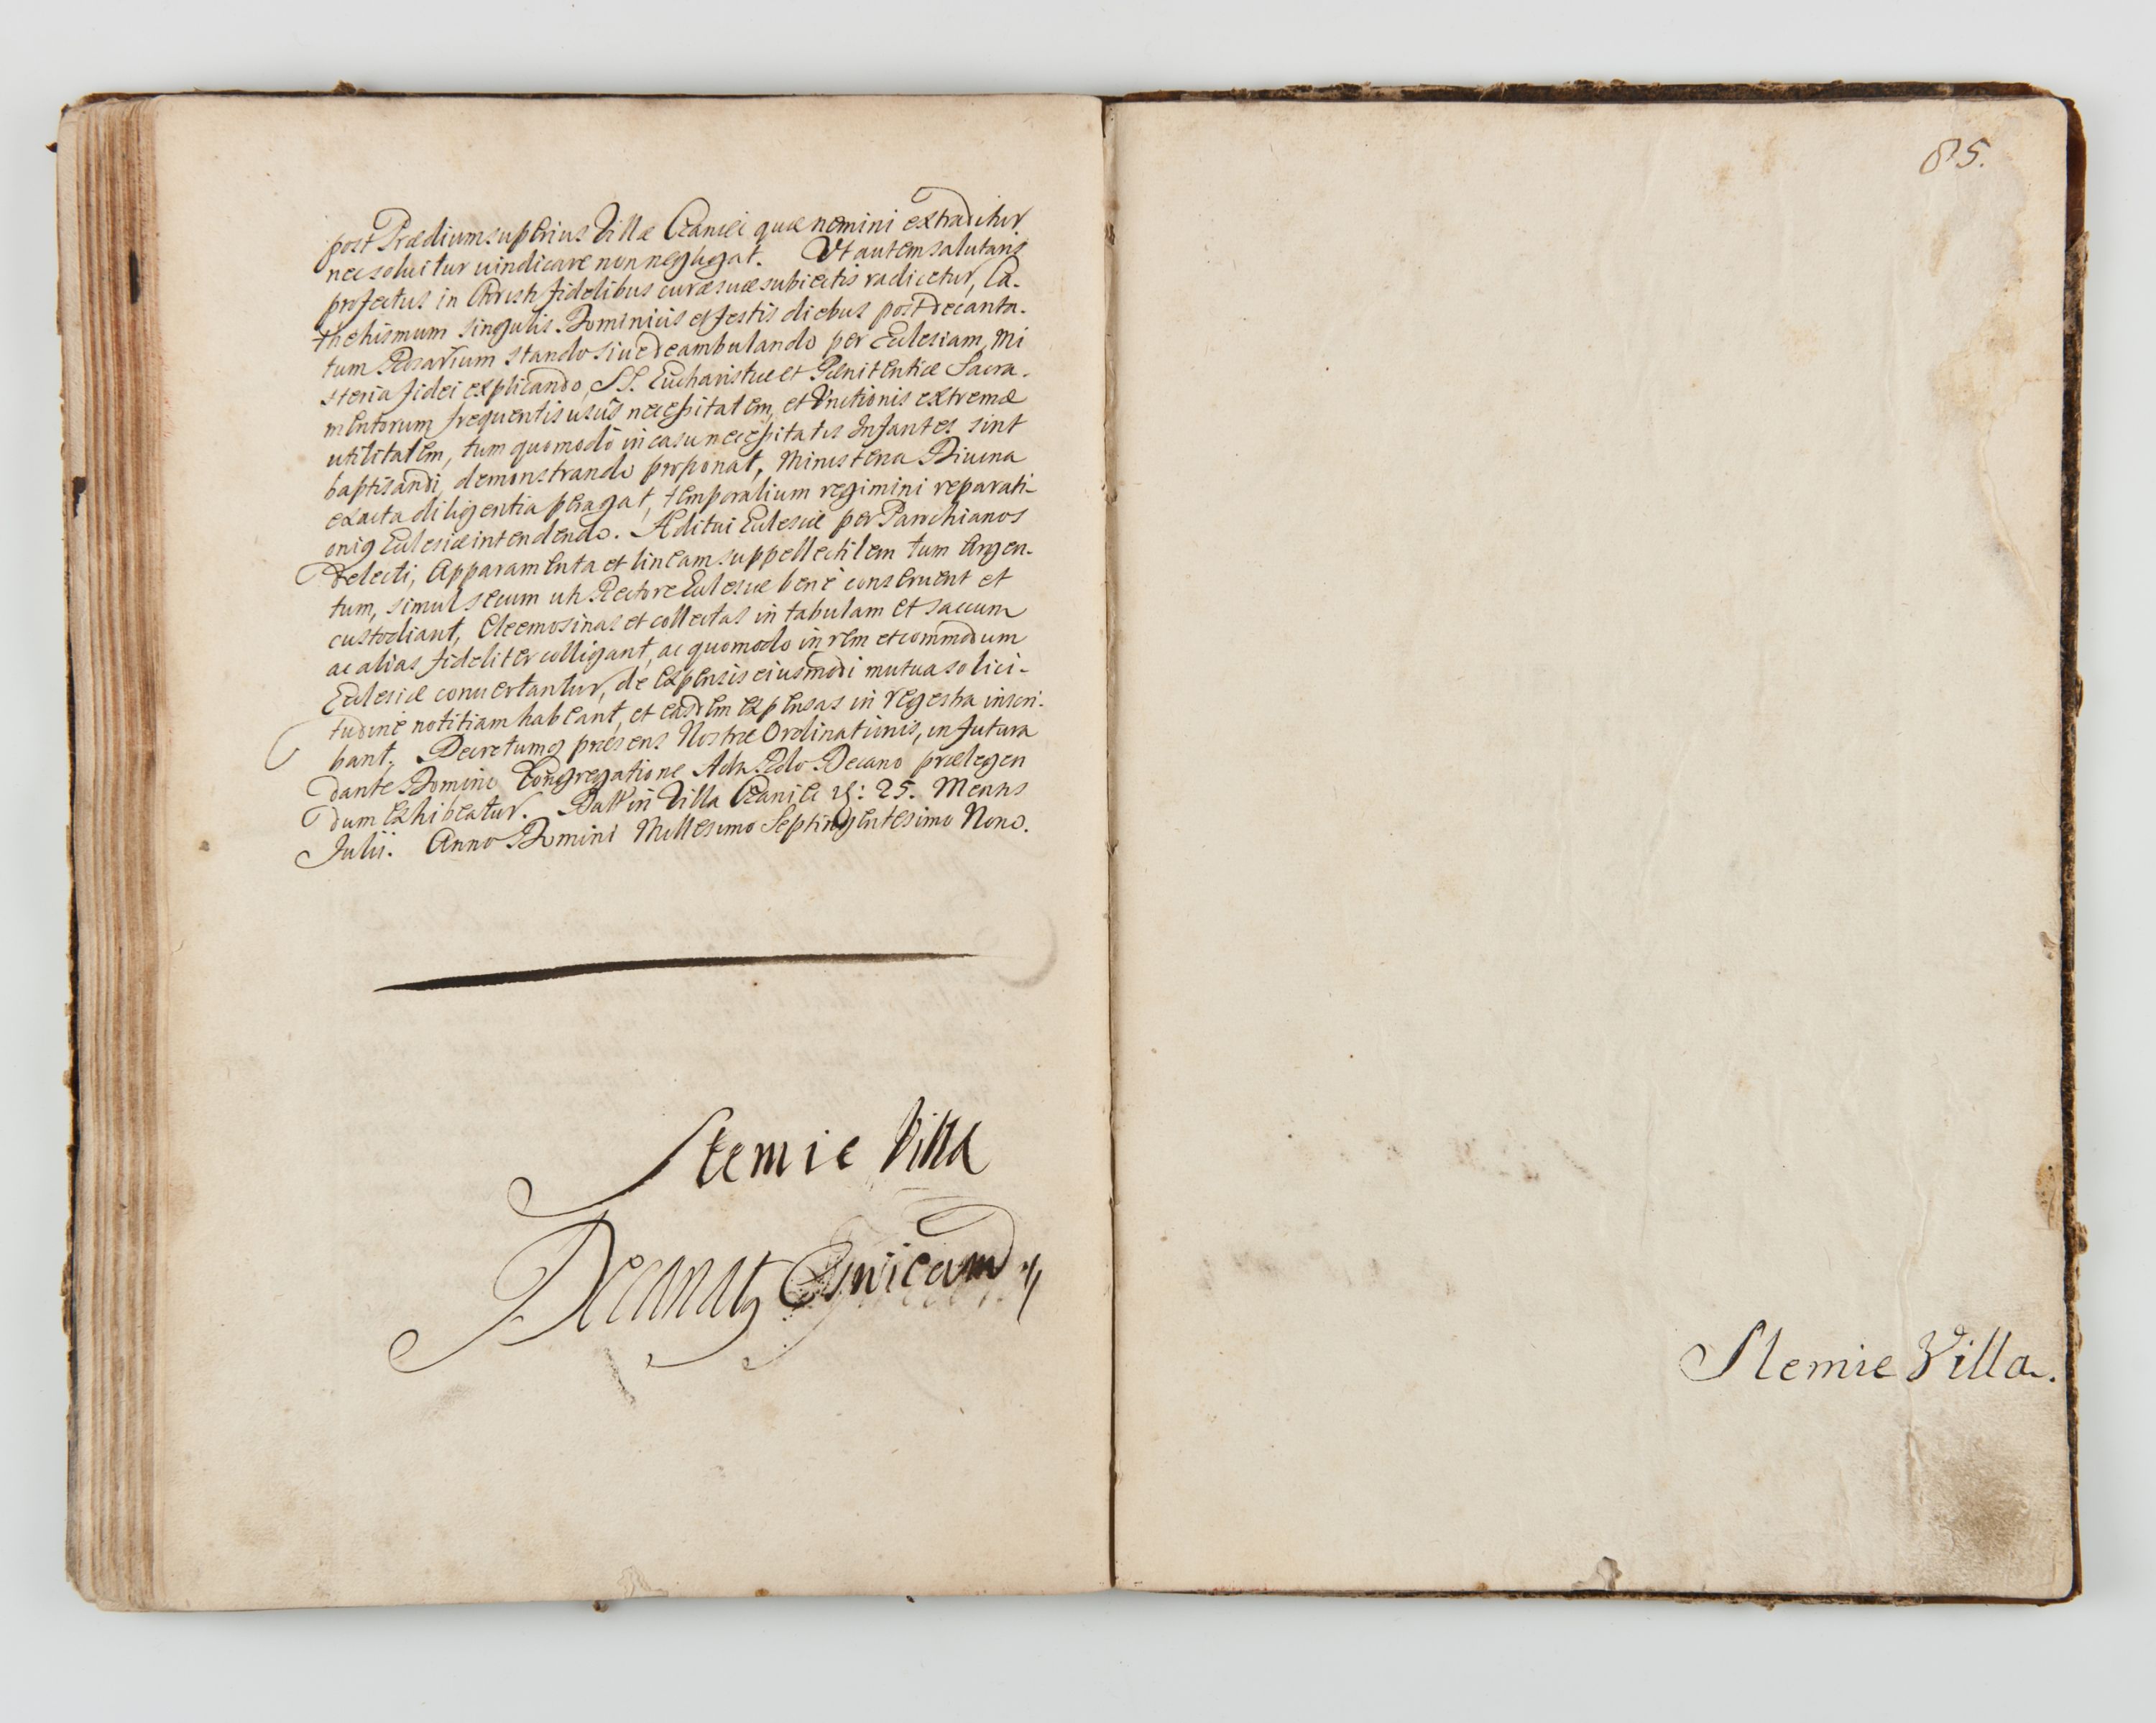 post Prædium superius Villæ Czaniec quæ nemini extraditur
nec soluitur uindicare non negligat. Vt autem salutaris
profectus in Christi fidelibus curæ suæ subiectis radicetur, Ca-
thehismum singulis Dominicis et festis diebus post decanta-
tum Rosarium stando siue deambulando per Eclesiam, Mi
steria fidei explicando, SS. Eucharistiæ et Pænitentiæ Sacra-
mentorum frequentis usus necessitatem, et Vnctionis extremæ
utilitatem, tum quomodo in casu necessitatis Infantes sint
baptisandi, demonstrando proponat, Ministeria Diuina
exacta diligentia peragat, temporalium regimini reparati-
oniq Eclesiæ intendendo. Æditui Eclesiæ per Parochianos
delecti, Apparamenta et lineam suppellectilem tum Argen-
tum, simul secum uti Rectore Eclesiæ bene conseruent et
custodiant, Eleemosinas et collectas in tabulam et saccum
ac alias fideliter colligant, ac quomodo in rem et commodum
Eclesiæ conuertantur, de expensis eiusmodi mutua solici-
tudine notitiam habeant, et easdem expensas in regestra inscri-
bant. Decretumq præsens Nostræ Ordinationis, in futura
dante Domino Congregatione Adm Rdo Decano prælegen
dum exhibeatur. Datt in Villa Czaniec 25. Mensis
Julii. Anno Domini Millesimo Septingentesimo Nono.
Stemie Villa
Decanatq
85.
Slemie Villa.